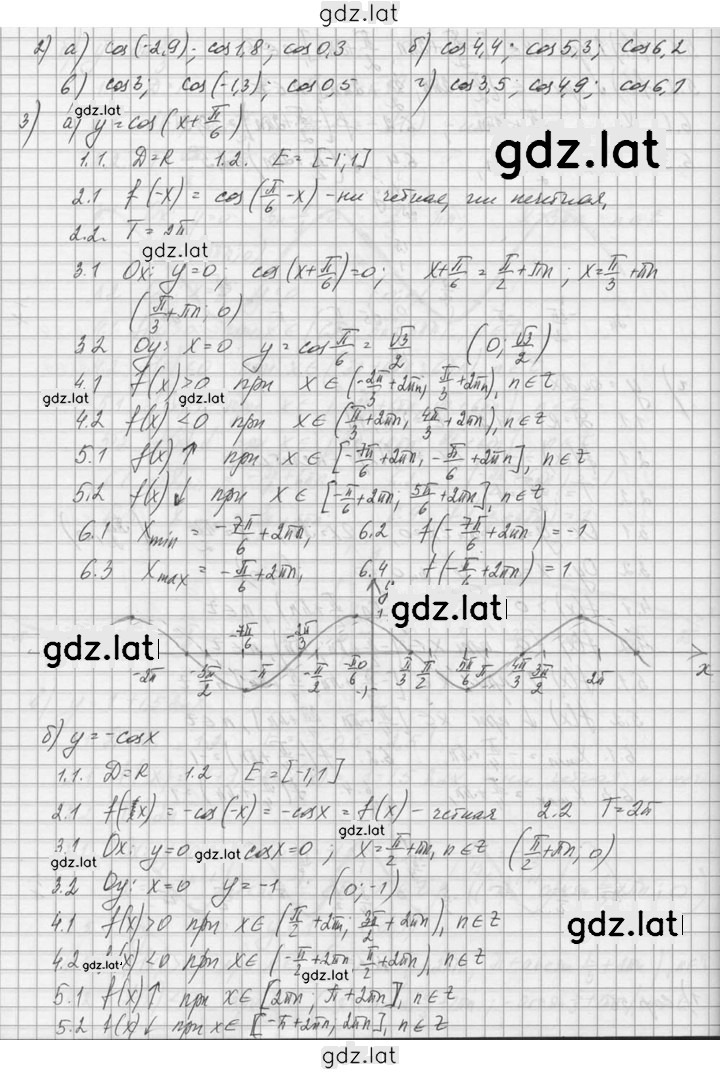 gdz.lat
2) а) cos(-2,9); cos1,8; cos0,3 б) cos4,4; cos5,3; cos6,2
в) cos3; cos(-1,3); cos0,5 г) cos3,5; cos4,9; cos6,1
gdz.lat
3) а) y = cos(x+π/6)
gdz.lat
1.1. D=R 1.2. E=[-1;1]
2.1 f(-x) = cos(π/6-x) - ни четная, ни нечетная,
2.2. T = 2π
gdz.lat
3.1 Ox: y=0; cos(x+π/6)=0; x+π/6 = π/2+πn; x=π/3+πn
(π/3+πn; 0)
3.2 Oy: x=0 y=cosπ/6=√3/2 (0; √3/2)
4.1 f(x)>0 при x∈(-2π/3+2πn; π/3+2πn), n∈Z
gdz.lat gdz.lat
4.2 f(x)<0 при x∈(π/3+2πn, 4π/3+2πn), n∈Z
5.1 f(x)↑ при x∈[-7π/6+2πn, -π/6+2πn], n∈Z
5.2 f(x)↓ при x∈[-π/6+2πn, 5π/6+2πn], n∈Z
6.1 x min = -7π/6+2πn; 6.2 f(-7π/6+2πn) = -1
6.3 x max = -π/6+2πn, 6.4 f(-π/6+2πn) = 1
gdz.lat
gdz.lat
-7π/6 -2π/3
-2π -3π/2 -π -π/2 -π/6 0 π/3 π/2 5π/6 π 4π/3 3π/2 2π x
-1
б) y = -cosx
1.1. D=R 1.2 E=[-1,1]
2.1 f(-x) = -cos(-x) = -cosx = f(x) - четная 2.2 T=2π
gdz.lat
3.1 Ox: y=0 cosx=0; x=π/2+πn, n∈Z (π/2+πn; 0)
gdz.lat gdz.lat
3.2 Oy: x=0 y=-1 (0;-1)
4.1 f(x)>0 при x∈(π/2+2πn; 3π/2+2πn), n∈Z
gdz.lat
4.2 f(x)<0 при x∈(-π/2+2πn π/2+2πn), n∈Z
gdz.lat gdz.lat
5.1 f(x)↑ при x∈[2πn; π+2πn], n∈Z
5.2 f(x)↓ при x∈[-π+2πn, 2πn], n∈Z
gdz.lat